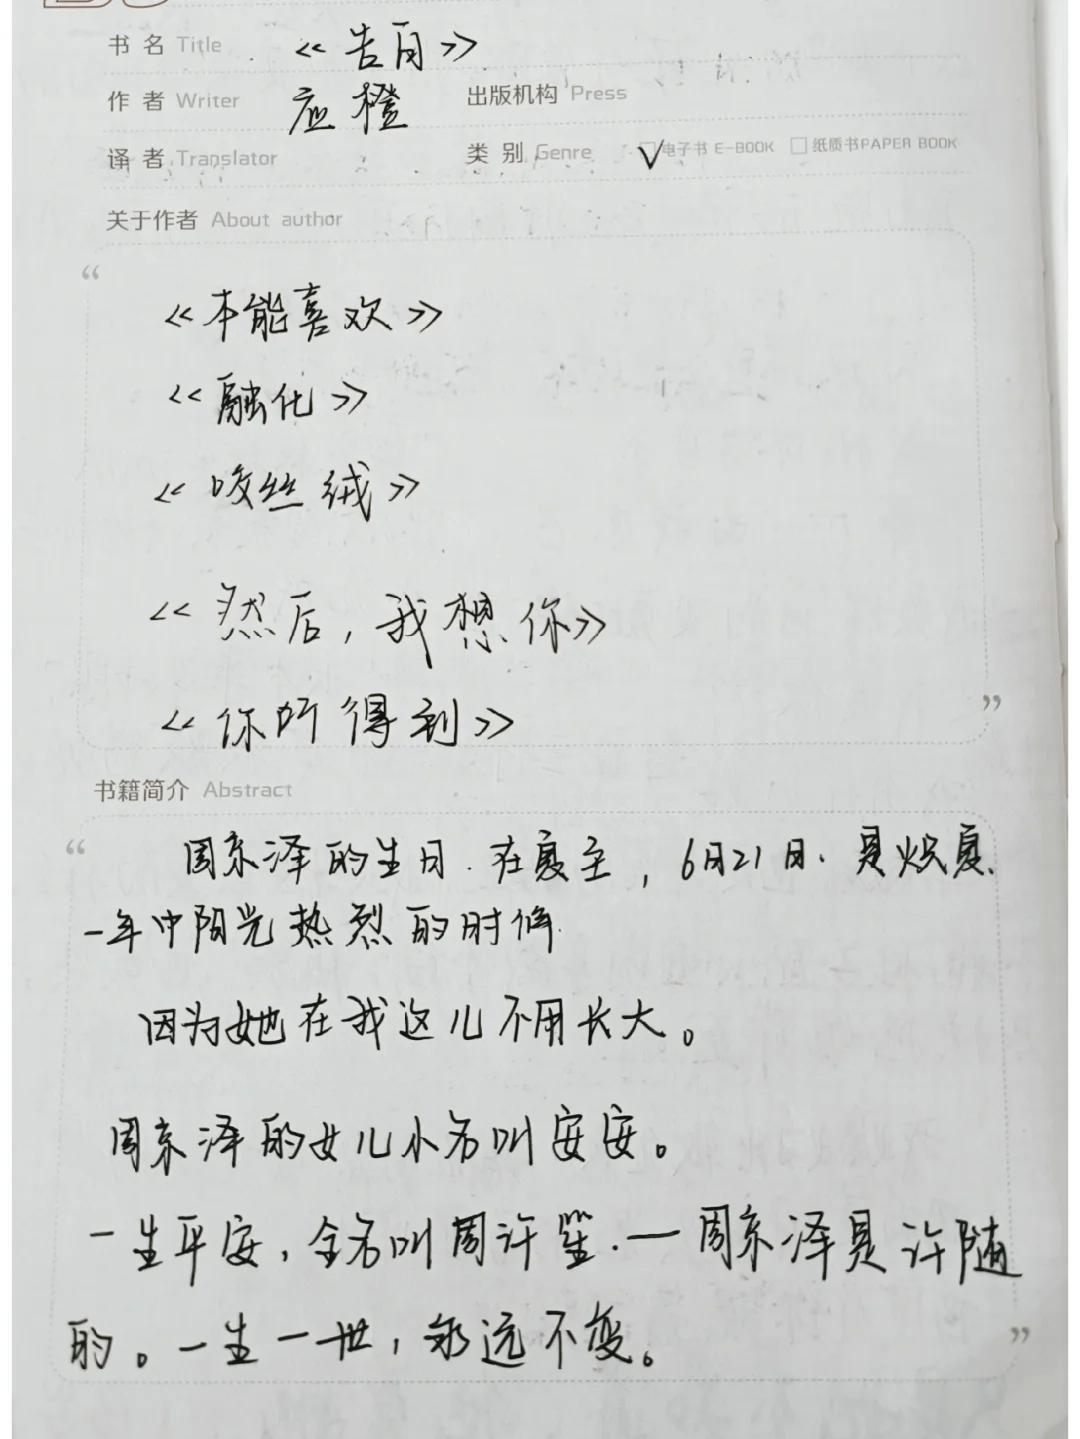 书 名 Title 《告白》
作 者 Writer 应橙 出版机构 Press
译 者 Translator 类 别 Genre √电子书 E-BOOK 纸质书PAPER BOOK
关于作者 About author
《本能喜欢》
《融化》
《咬丝绒》
《然后，我想你》
《你所得到》
书籍简介 Abstract
周京泽的生日.在夏至，6月21日.是炽夏.
一年中阳光热烈的时候.
因为她在我这儿不用长大。
周京泽的女儿小名叫安安。
一生平安，全名叫周许笙.一周京泽是许随
的。一生一世，永远不变。